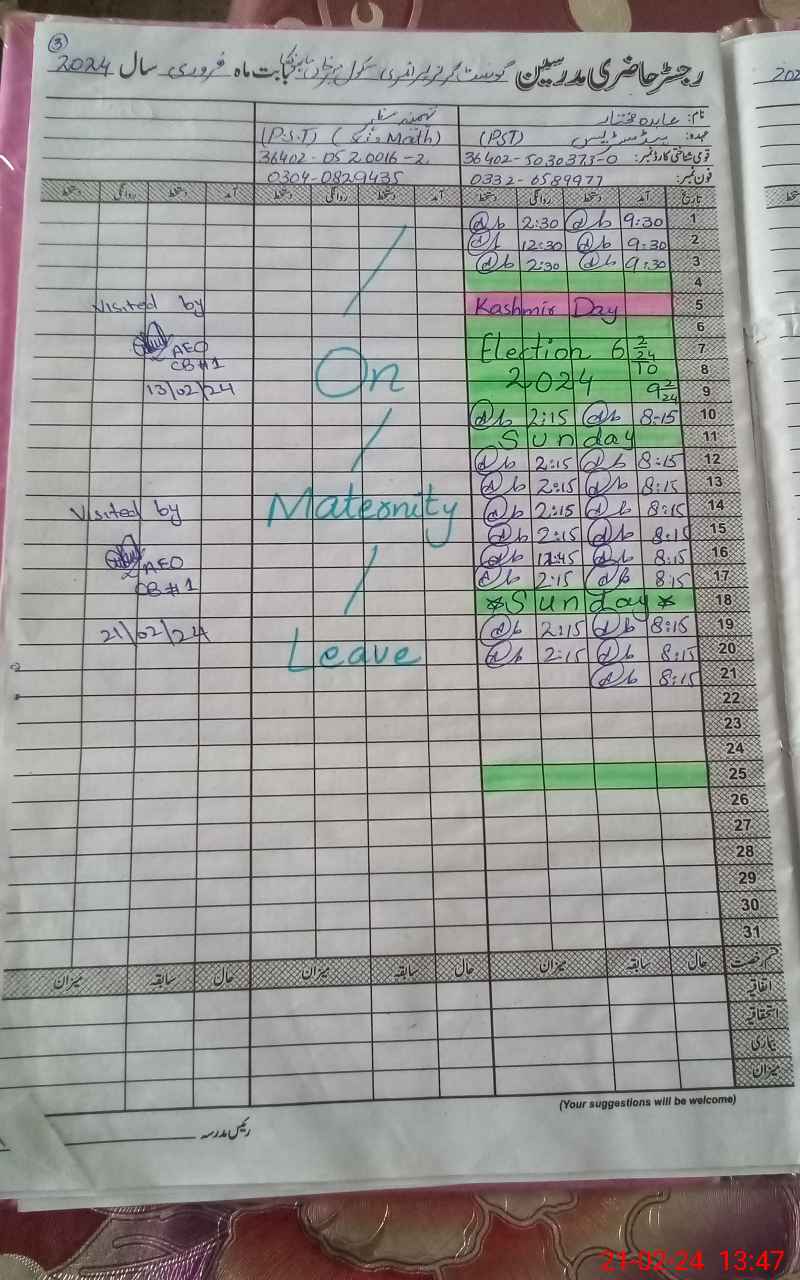 3
رجسٹر حاضری مدرسین گورنمنٹ گرلز پرائمری سکول بابت ماہ فروری سال 2024
نام: عابدہ مختار
عہدہ: ہیڈ مسٹریس (PST) (Math) (P.S.T)
قومی شناختی کارڈ نمبر: 36402-5030373-0 36402-0520016-2
فون نمبر: 0332-6589977 0304-0829435
تاریخ آمد دستخط روانگی دستخط آمد دستخط روانگی دستخط آمد دستخط روانگی دستخط
1 9:30 2:30
2 9:30 12:30
3 9:30 2:30
4
5 Kashmir Day
6
7 Election 6 2/24
8 2024 TO
9 9 2/24
10 8:15 2:15
11 Sunday
12 8:15 2:15
13 8:15 2:15
14 8:15 2:15
15 8:15 2:15
16 8:15 12:45
17 8:15 2:15
18 *Sunday*
19 8:15 2:15
20 8:15 2:15
21 8:15
22
23
24
25
26
27
28
29
30
31
On
Maternity
Leave
Visited by
AEO
CB#1
13/02/24
Visited by
AEO
CB#1
21/02/24
قسم رخصت حال سابقہ میزان حال سابقہ میزان حال سابقہ میزان
اتفاقیہ
استحقاقیہ
بیماری
میزان
(Your suggestions will be welcome)
رئیس مدرسہ
21-02-24 13:47